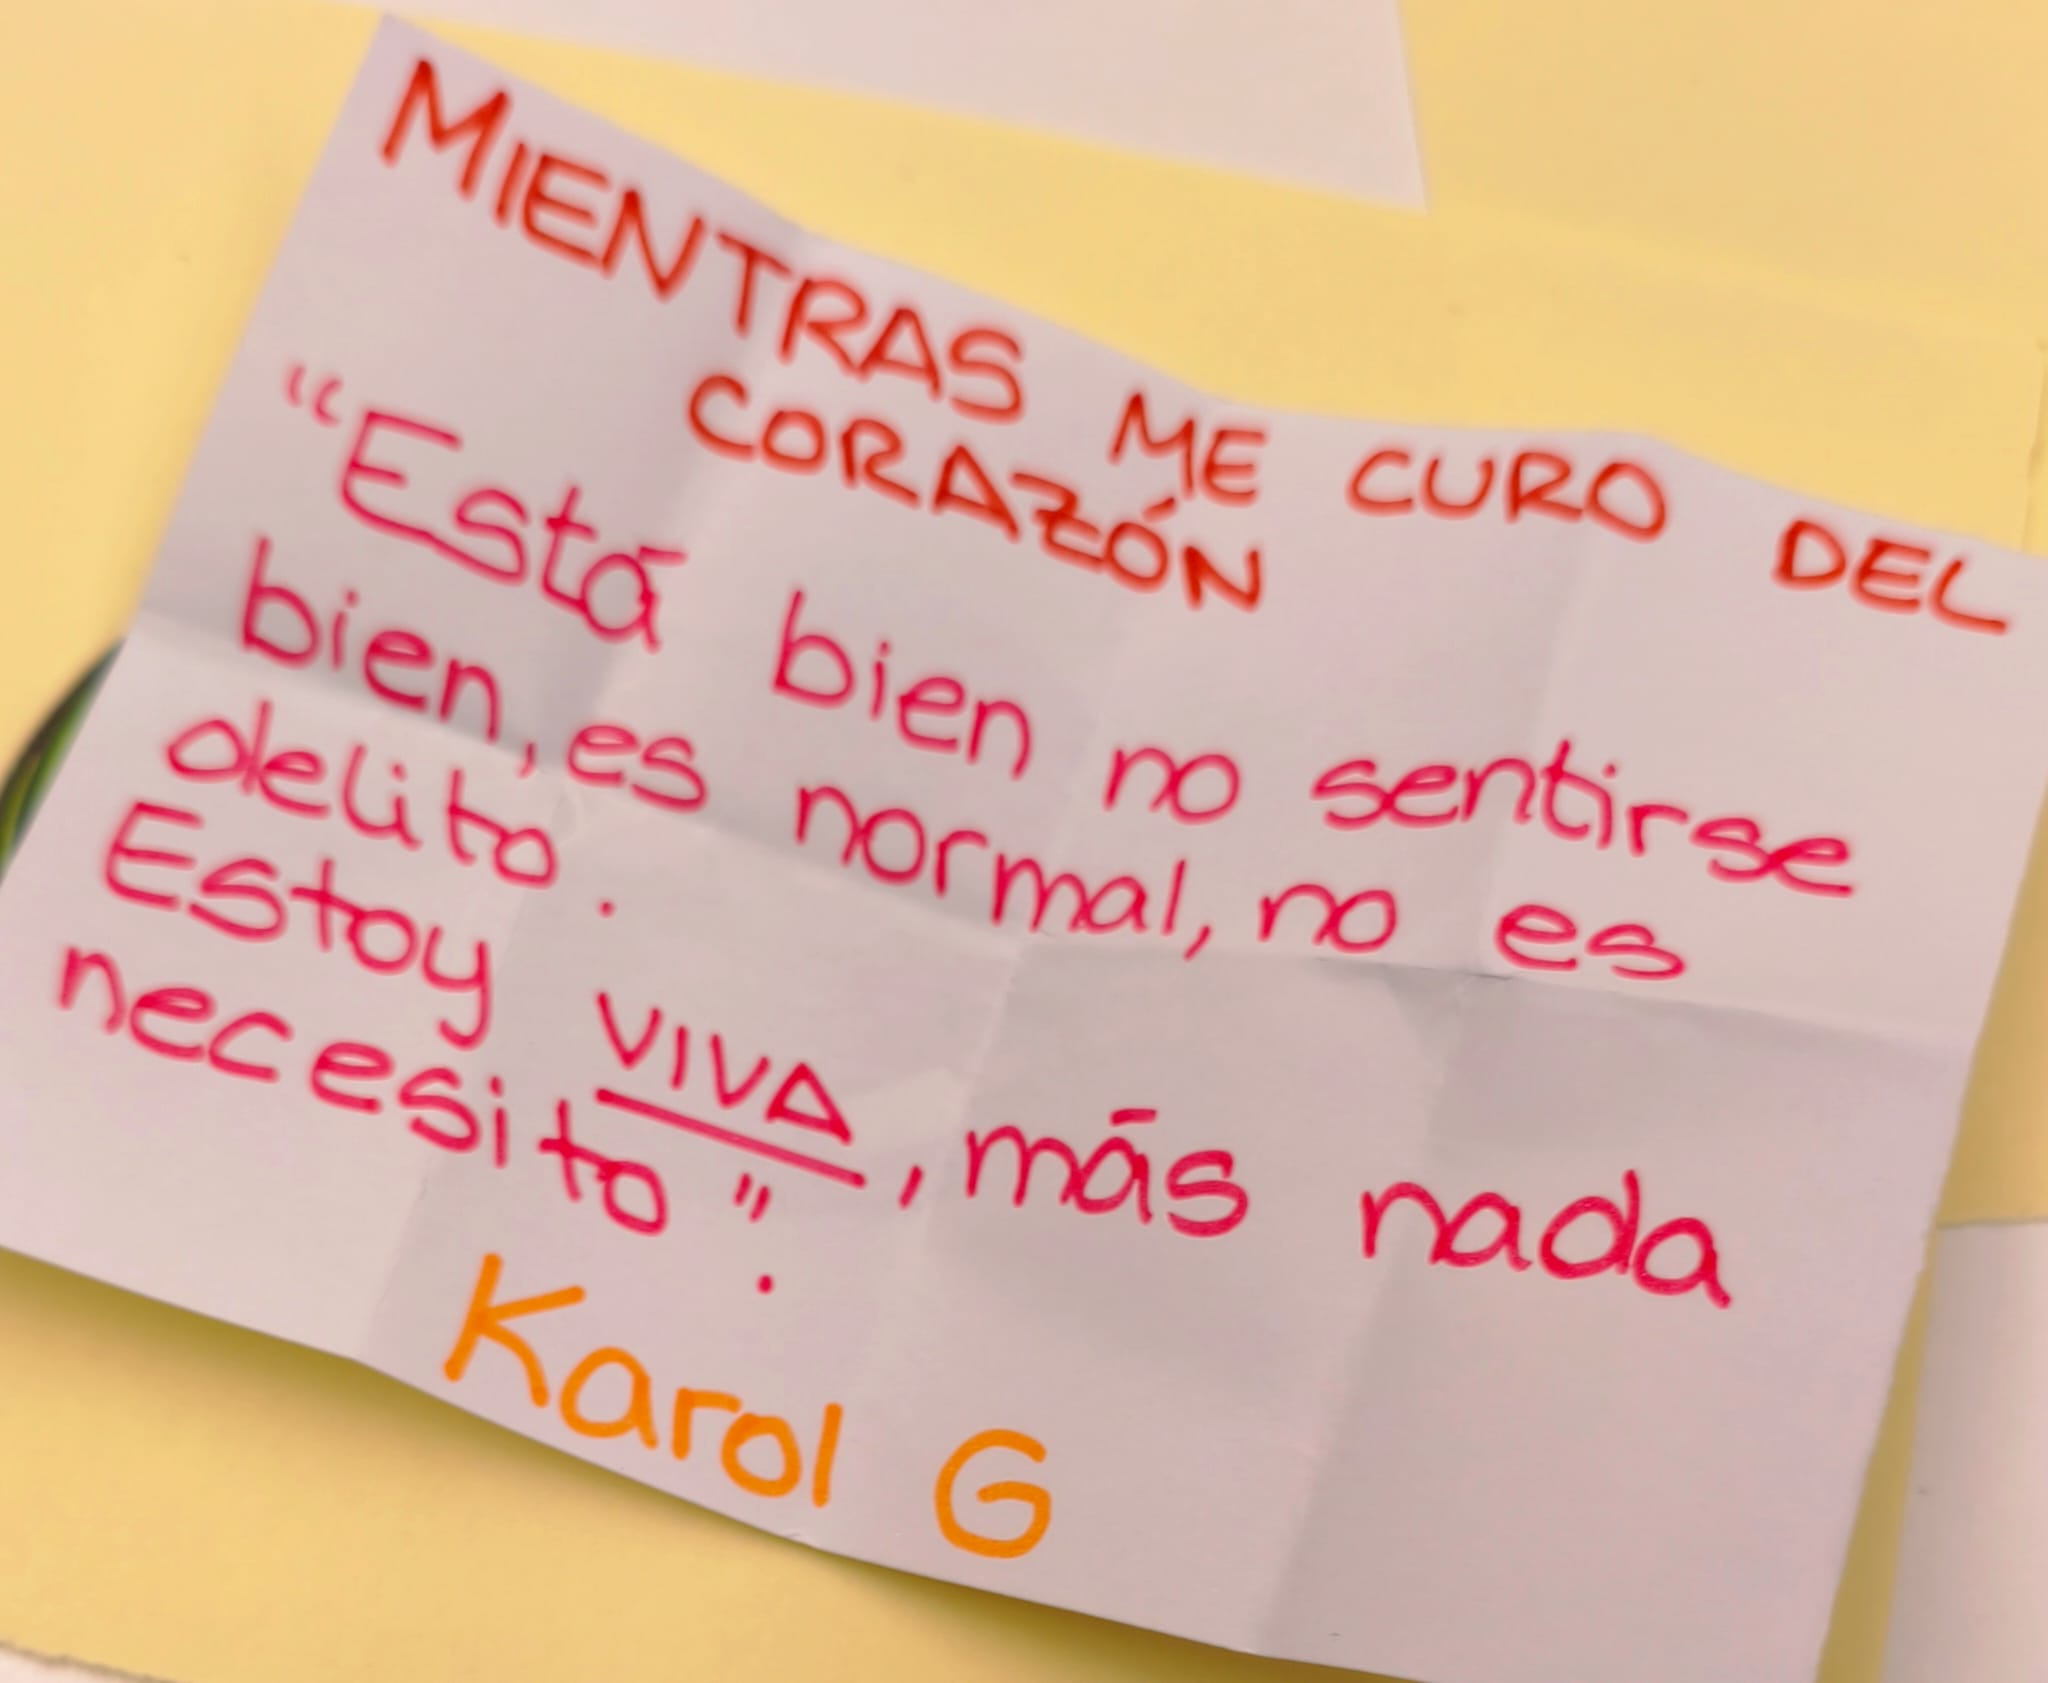 MIENTRAS ME CURO DEL
CORAZÓN
"Está bien no sentirse
bien, es normal, no es
delito.
Estoy VIVA, más nada
necesito".
Karol G